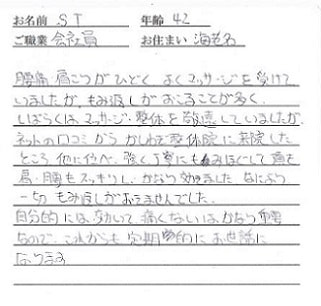 お名前 ST 年齢 42
ご職業 会社員 お住まい 海老名
腰痛・肩こりがひどく よくマッサージを受けて
いましたが、もみ返しがおこることが多く、
しばらくは、マッサージ・整体を敬遠していましたが、
ネットの口コミから かしわで整体院に来院した
ところ 他に比べ、強く丁寧にもみほぐして 頂き
肩・腰もスッキリし、かなり効きました なにより
一切 もみ返しがおきませんでした。
自分的には 効いて 痛くないは かなり重要
なので、これからも 定期的に お世話に
なります